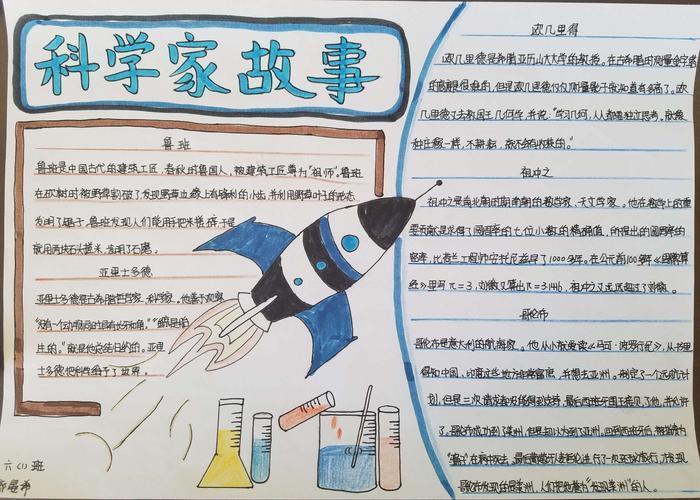 科学家故事
鲁班
鲁班是中国古代的建筑工匠，春秋时鲁国人，被建筑工匠尊为"祖师"。鲁班
在砍树时被野草割破了发现野草边缘上有锋利的小齿，并利用野草叶子的形态
发明了锯子，鲁班发现人们用手把米搓碎于是
就用两块石头搓米，发明了石磨。
亚里士多德
亚里士多德是古希腊哲学家，科学家。他善于观察
的。"就是他总结归纳的。亚里
士多德把科学给予了世界。
欧几里得
欧几里德是希腊亚历山大大学的教授。在古希腊时测量金字塔
的高度是很难的，但是欧几里德仅仅测量影子就知道有多高了。欧
几里德又去教国王几何学，并说："学习几何，人人都要独立思考。就像
种庄稼一样，不耕耘，就不会有收获的。"
祖冲之
祖冲之是南北朝时期南朝的数学家，天文学家。他在数学上的重
要贡献是求得了圆周率的七位小数的精确值，所提出的圆周率的
密率，比荷兰工程师安托尼兹早了1000多年。在公元前100多年《周髀算
经》里写π=3，刘徽又算出π=3.1416，祖冲之又远远超过了刘徽。
哥伦布
哥伦布是意大利的航海家。他从小就爱读《马可·波罗行纪》，从书里
得知中国，印度这些地方非常富庶，并想去亚洲。制定了一个远航计
划，但是三次请求都没能得到支持，最后西班牙国王看见了他，并允许
了。哥伦布成功到了美洲，但是却以为到了亚洲，回到西班牙后，
哥伦布发现的是美洲，人们把他喻为"发现美洲"的人。
六（1）班